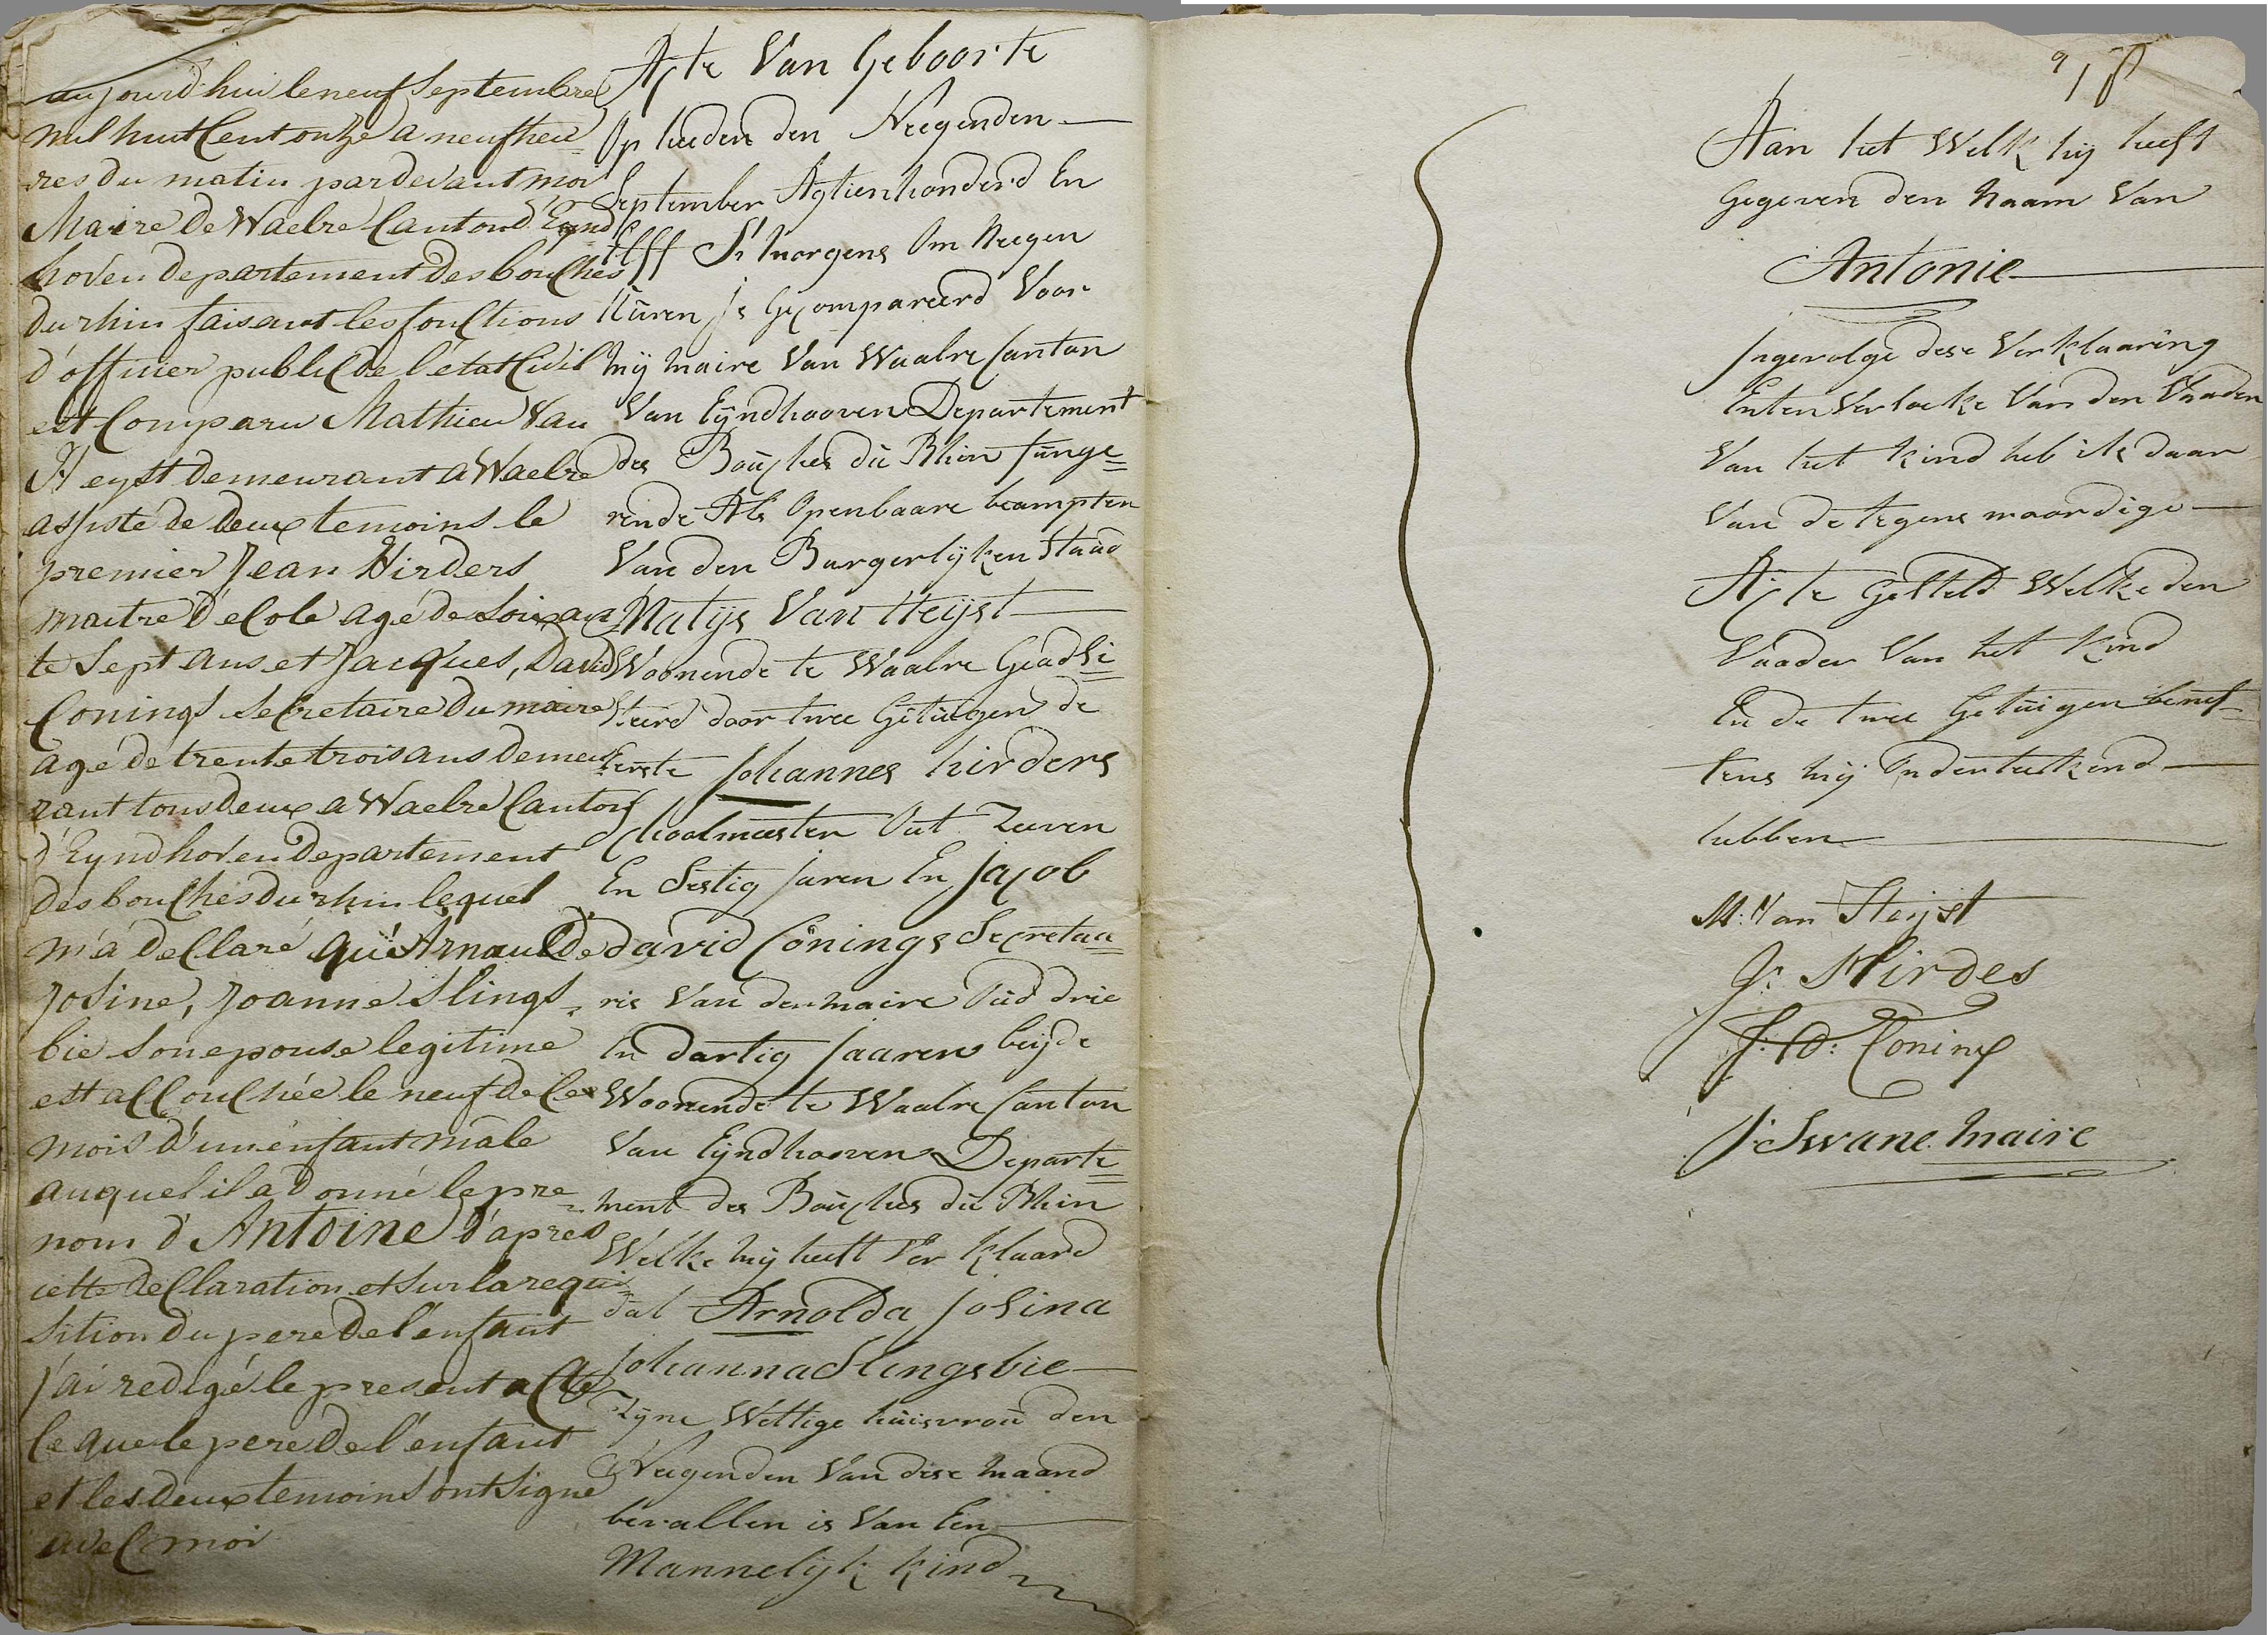 aujourd'hui le neuf Septembre
mil huit Cent onze a neuf heu=
res du matin par devant moi
Maire de Waelre Canton d'Eynd
hoven departement des bouches
du rhin faisant les fonctions
d'officier public de l'état Civil
est Comparu Mathieu Van
Heyst demeurant a Waelre
assisté de deux temoins le
premier Jean Hirders
maitre d'ecole agé de soixan
te sept ans et Jacques, David
Conings secretaire du maire
agé de trente trois ans demeu
rant tous deux a Waelre Canton
d'Eyndhoven departement
des bouches du rhin lequel
m'a declaré qu'Arnaulde
Josine, Joanne Slings=
bie son epouse legitime
est accouchée le neuf de ce
mois d'un enfant mâle
auquel il a donné le pre=
nom d'Antoine d'après
cette declaration et sur la requi
sition du pere de l'enfant
j'ai redigé le present acte
ce que le pere de l'enfant
et les deux temoins ont signé
avec moi
Acte Van Geboorte
Op heeden den Neegenden
September Agtienhonderd En
Elff S'morgens Om Neegen
Uuren is Gecompareerd Voor
Mij Maire Van Waalre Canton
Van Eyndhooven Departement
des Bouches du Rhin funge=
rende Als Openbaare beampten
Van den Burgerlyken Staad
Matijs Van Heijst
Woonende te Waalre Geadsi=
steerd door twee Getuigen de
Eerste Johannes hirders
Schoolmeester Out Zeeven
En Sestig Jaren En Jacob
david Conings Secretaa=
ris Van den maire Oud drie
En dartig Jaaren beijde
Woonende te Waalre Canton
Van Eyndhooven Departe=
ment des Bouches du Rhin
Welke mij heeft Verklaard
dat Arnolda Josina
Johanna Slingsbie
Zijne Wettige huisvrou den
Neegenden Van dese maand
bevallen is Van Een
Mannelijk kind
918
Aan het Welk hij heeft
Gegeven den Naam Van
Antonie
Ingevolge dese Verklaaring
En ten Verzoeke Van den Vaader
Van het kind heb ik daar
Van de tegenswoordige
Acte Gesteld Welke den
Vaader Van het Kind
En de twee Getuigen benef=
fens mij Onderteekend
hebben
M: Van Heijst
J: Hirdes
J: D: Conings
J: Swane Maire